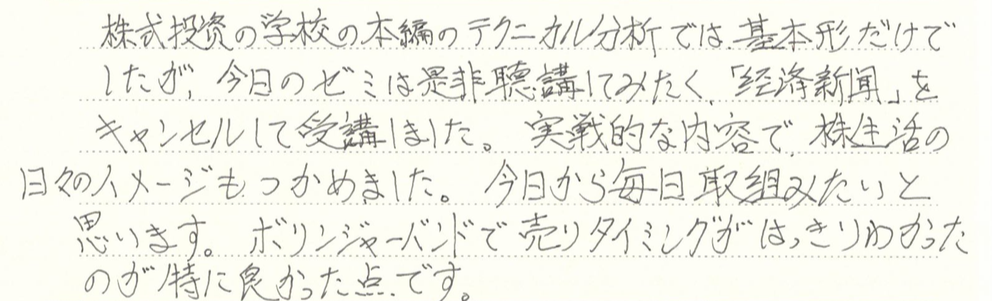 株式投資の学校の本編のテクニカル分析では、基本形だけで
したが、今日のゼミは是非聴講してみたく、「経済新聞」を
キャンセルして受講しました。実戦的な内容で、株生活の
日々のイメージもつかめました。今日から毎日取組みたいと
思います。ボリンジャーバンドで売りタイミングがはっきりわかった
のが特に良かった点です。